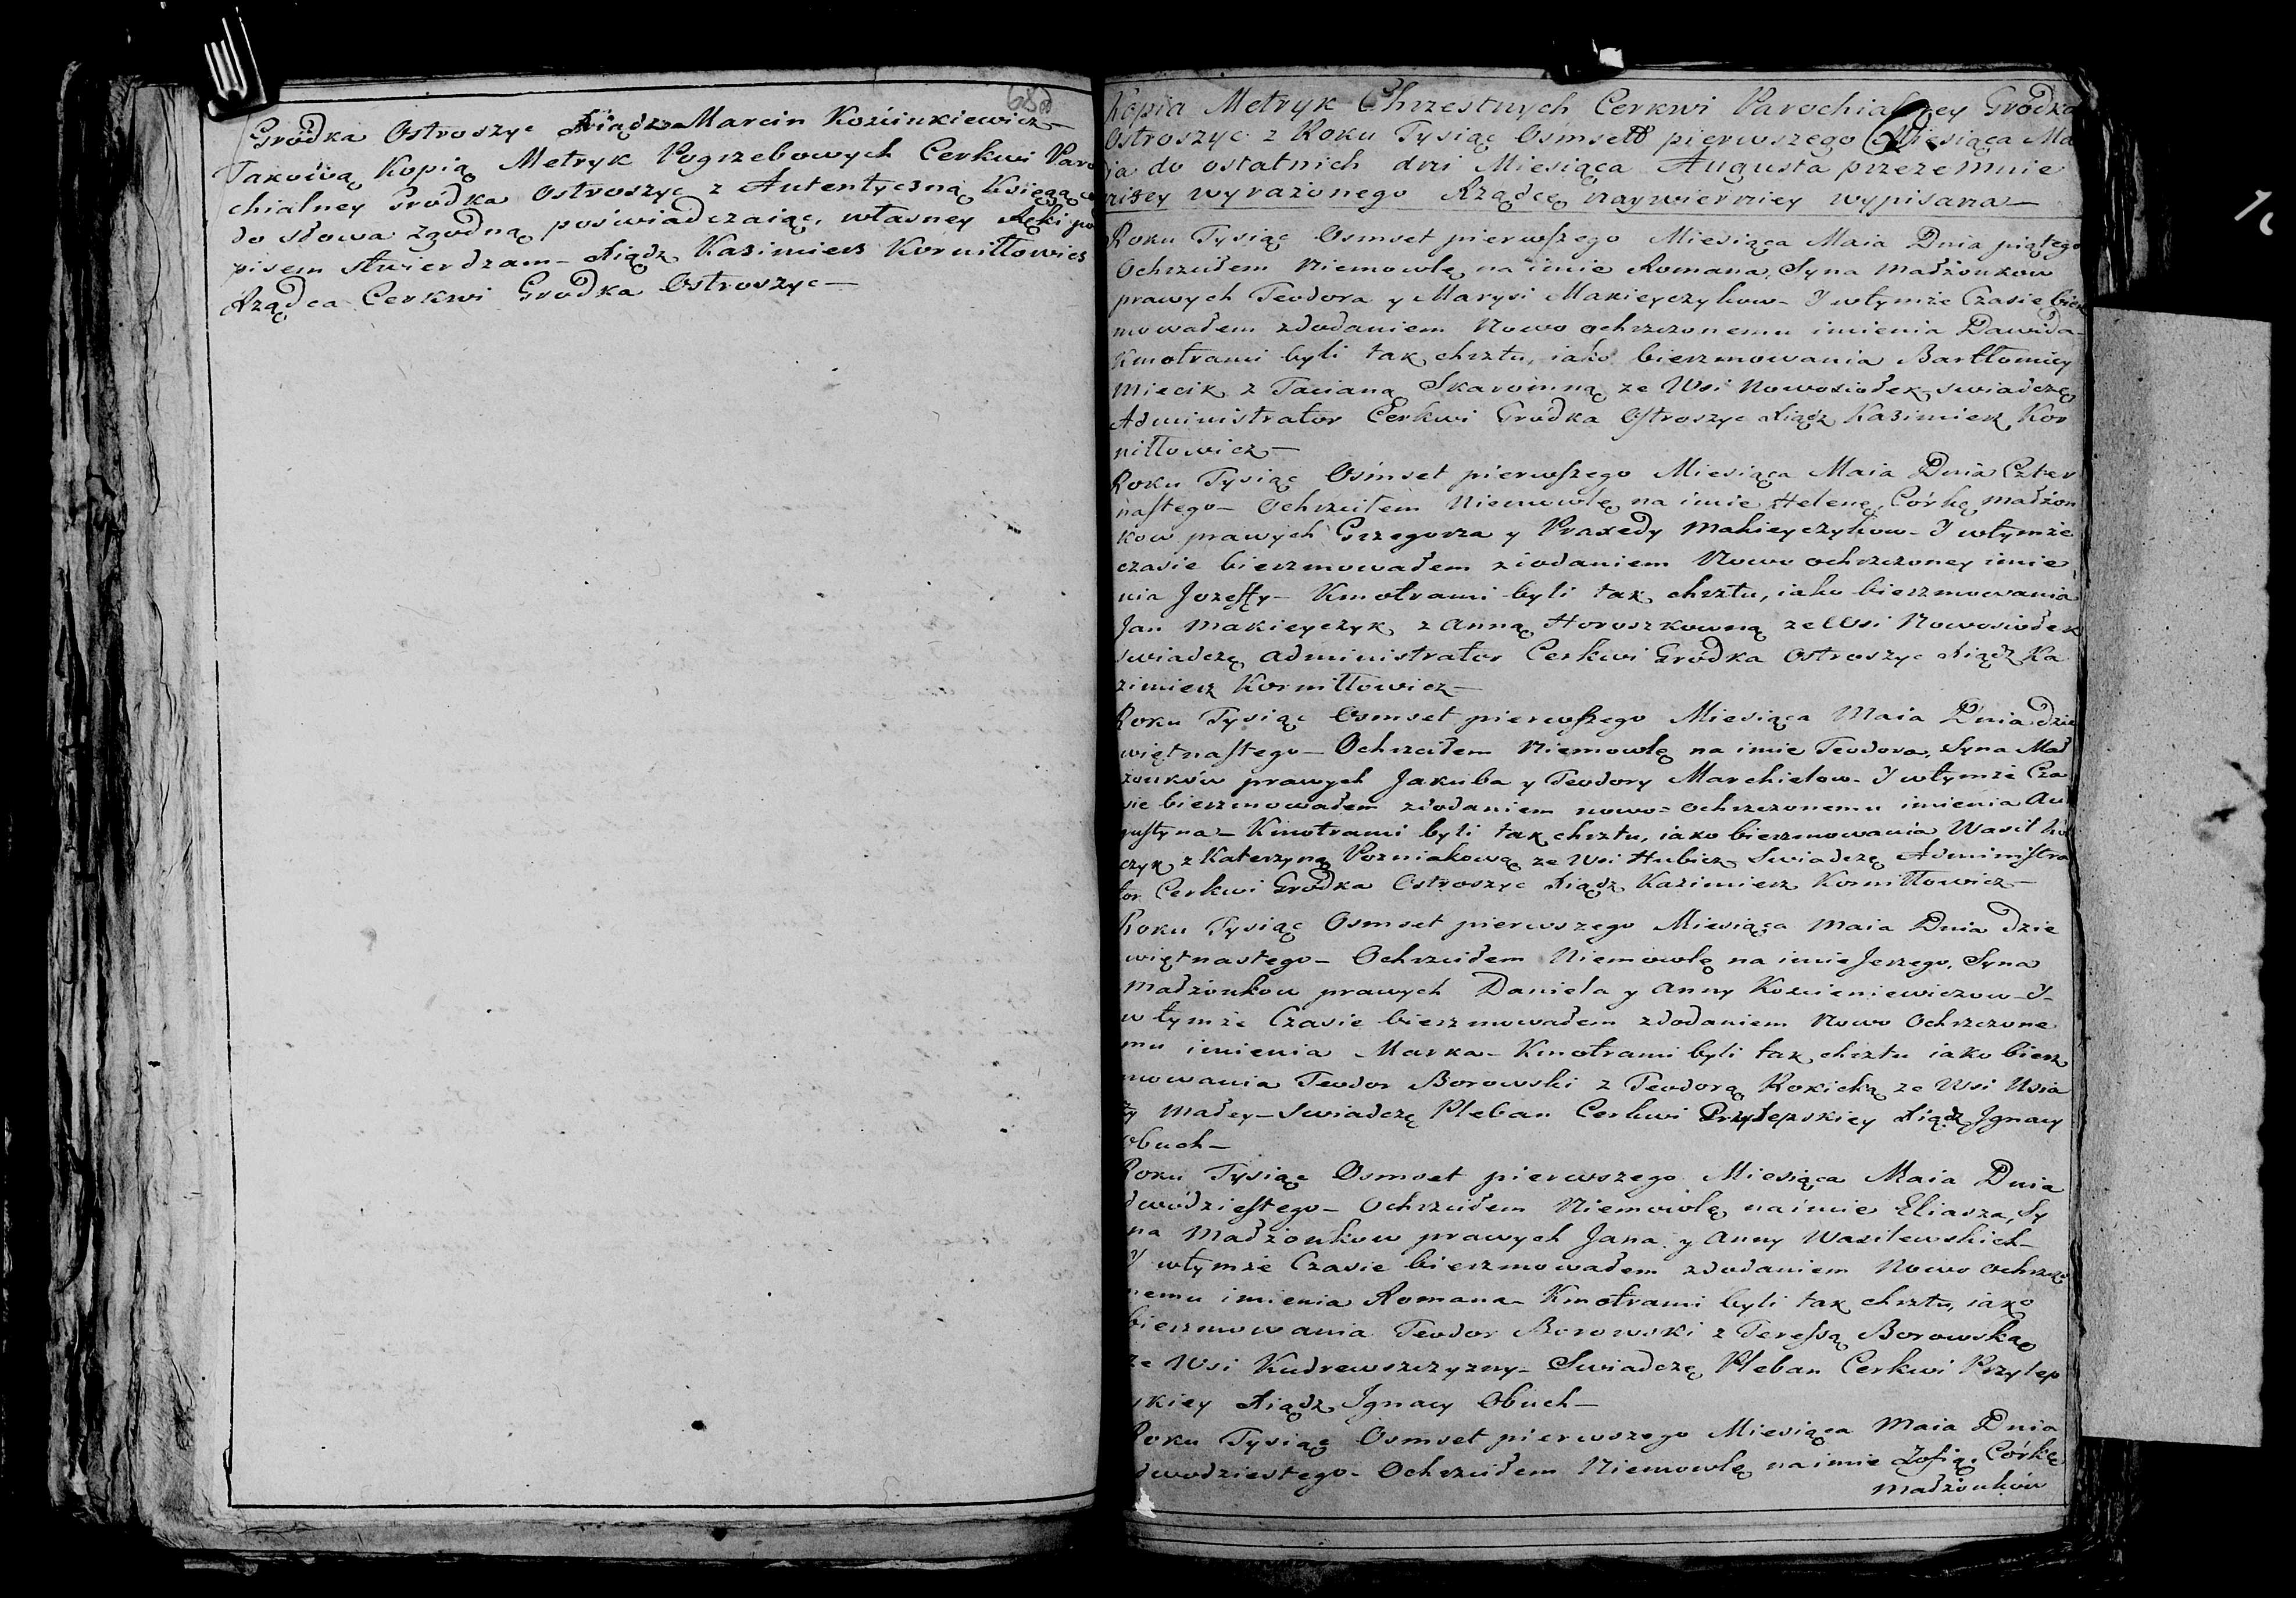 Gródka Ostroszyc Xiądz Marcin Koziinkiewicz—
Takową Kopią Metryk Pogrzebowych Cerkwi Paro
chialney Gródka Ostroszyc z Autentyczną Księgą
do słowa zgodną poświadczaiąc, własney Ręki po
pisem stwierdzam— Xiądz Kazimierz Korniłłowicz
Rządca Cerkwi Grodka Ostroszyc—
Kopia Metryk Chrzestnych Cerkwi Parochialney Gródka
Ostroszyc z Roku Tysiąc Osmset pierwszego Miesiąca Ma
ia do ostatnich dni Miesiąca Augusta przezemnie
niżey wyrażonego Rządcę naywierniey wypisana—
Roku Tysiąc Osmset pierwszego Miesiąca Maia Dnia piątego
Ochrzciłem Niemowlę na imie Romana, Syna małżonkow
prawych Teodora y Marysi Makieyczykow— Y wtymże Czasie bierz
mowałem zdodaniem Nowo ochrzczonemu imienia Dawida—
Kmotrami byli tak chrztu, iako bierzmowania Bartłomiey
Miecik z Tacianą Skarominą ze Wsi Nowosiołek swiadczę
Administrator Cerkwi Gródka Ostroszyc Xiądz Kazimierz Kor
niłłowicz—
Roku Tysiąc Osmset pierwszego Miesiąca Maia Dnia Czter
nastego— Ochrzciłem Niemowlę na imie Helenę, Córkę małżon
kow prawych Grzegorza y Praxedy Makieyczykow— Y wtymże
czasie bierzmowałem zdodaniem Nowo ochrzczoney imie
nia Jozeffy— Kmotrami byli tak chrztu, iako bierzmowania
Jan Makieyczyk z Anną Horoszkowną ze Wsi Nowosiołek
swiadczę Administrator Cerkwi Gródka Ostroszyc Xiądz Ka
zimierz Korniłłowicz—
Roku Tysiąc Osmset pierwszego Miesiąca Maia Dnia dzie
więtnastego— Ochrzciłem Niemowlę na imie Teodora, Syna Mał
żonków prawych Jakuba y Teodory Marchielow— Y wtymże Cza
sie bierzmowałem zdodaniem nowo=ochrzczonemu imienia Au
gustyna— Kmotrami byli tak chrztu, iako bierzmowania Wasil
czyk z Katerzyną Pozniakową ze Wsi Hubicz Swiadczę Administra
tor Cerkwi Gródka Ostroszyc Xiądz Kazimierz Korniłłowicz—
Roku Tysiąc Osmset pierwszego Miesiąca Maia Dnia dzie
więtnastego— Ochrzciłem Niemowlę na imie Jerzego, Syna
Małżonkow prawych Daniela y Anny Kozieniewiczow— Y—
w tymże Czasie bierzmowałem zdodaniem Nowo Ochrzczone
mu imienia Marka— Kmotrami byli tak chrztu iako bierz
mowania Teodor Borowski z Teodorą Rokicką ze Wsi Usia
ży Małey— Swiadczę Pleban Cerkwi Przylepskiey Xiądz Ignacy
Obuch—
Roku Tysiąc Osmset pierwszego Miesiąca Maia Dnia
dwódziestego— Ochrzciłem Niemowlę na imie Eliasza, Sy
na Małżonkow prawych Jana y Anny Wasilewskich—
Y wtymże Czasie bierzmowałem zdodaniem Nowo ochrzczo
nemu imienia Romana— Kmotrami byli tak chrztu, iako
bierzmowania Teodor Borowski z Teressą Borowską
ze Wsi Kudrewszczyzny— Swiadczę Pleban Cerkwi Przylep
skiey Xiądz Ignacy Obuch—
Roku Tysiąc Osmset pierwszego Miesiąca Maia Dnia
dwodziestego— Ochrzciłem Niemowlę na imie Zofią, Córkę
małżonków